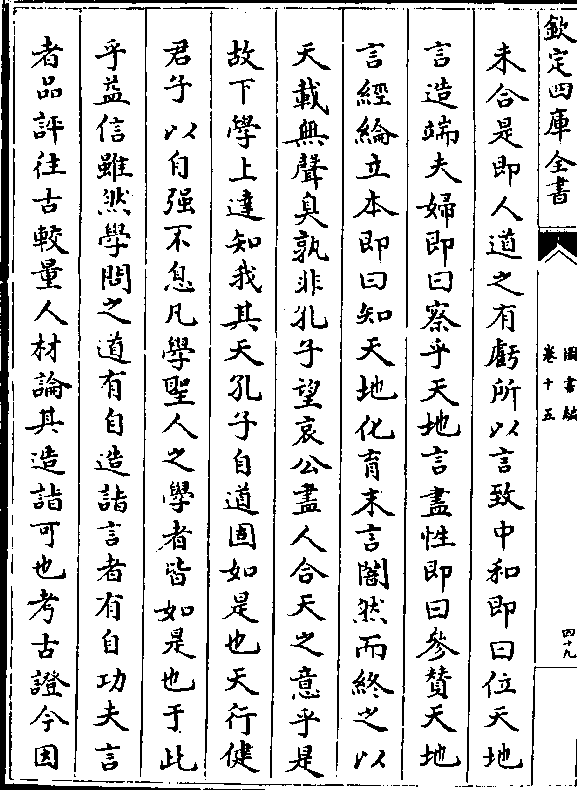 欽定四庫全書
圖書編
卷十五
四十九
未合是即人道之有虧所以言致中和即曰位天地
言造端夫婦即曰察乎天地言盡性即曰參贊天地
言經綸立本即曰知天地化育末言闇然而終之以
天載無聲臭孰非孔子望哀公盡人合天之意乎是
故下學上達知我其天孔子自道固如是也天行健
君子以自强不息凡學聖人之學者皆如是也于此
乎益信雖然學問之道有自造詣言者有自功夫言
者品評往古較量人材論其造詣可也考古證今因